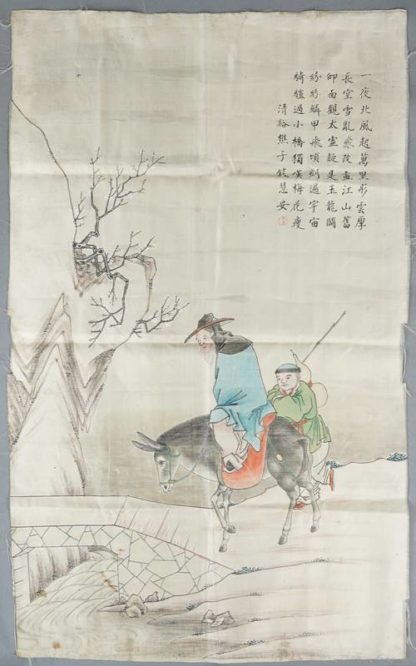 一夜北風起萬里彤雲厚
長空雪亂飄改盡江山舊
仰面觀太虛疑是玉龍鬭
紛紛鱗甲飛頃刻遍宇宙
騎驢過小橋獨嘆梅花瘦
清谿樵子錢慧安